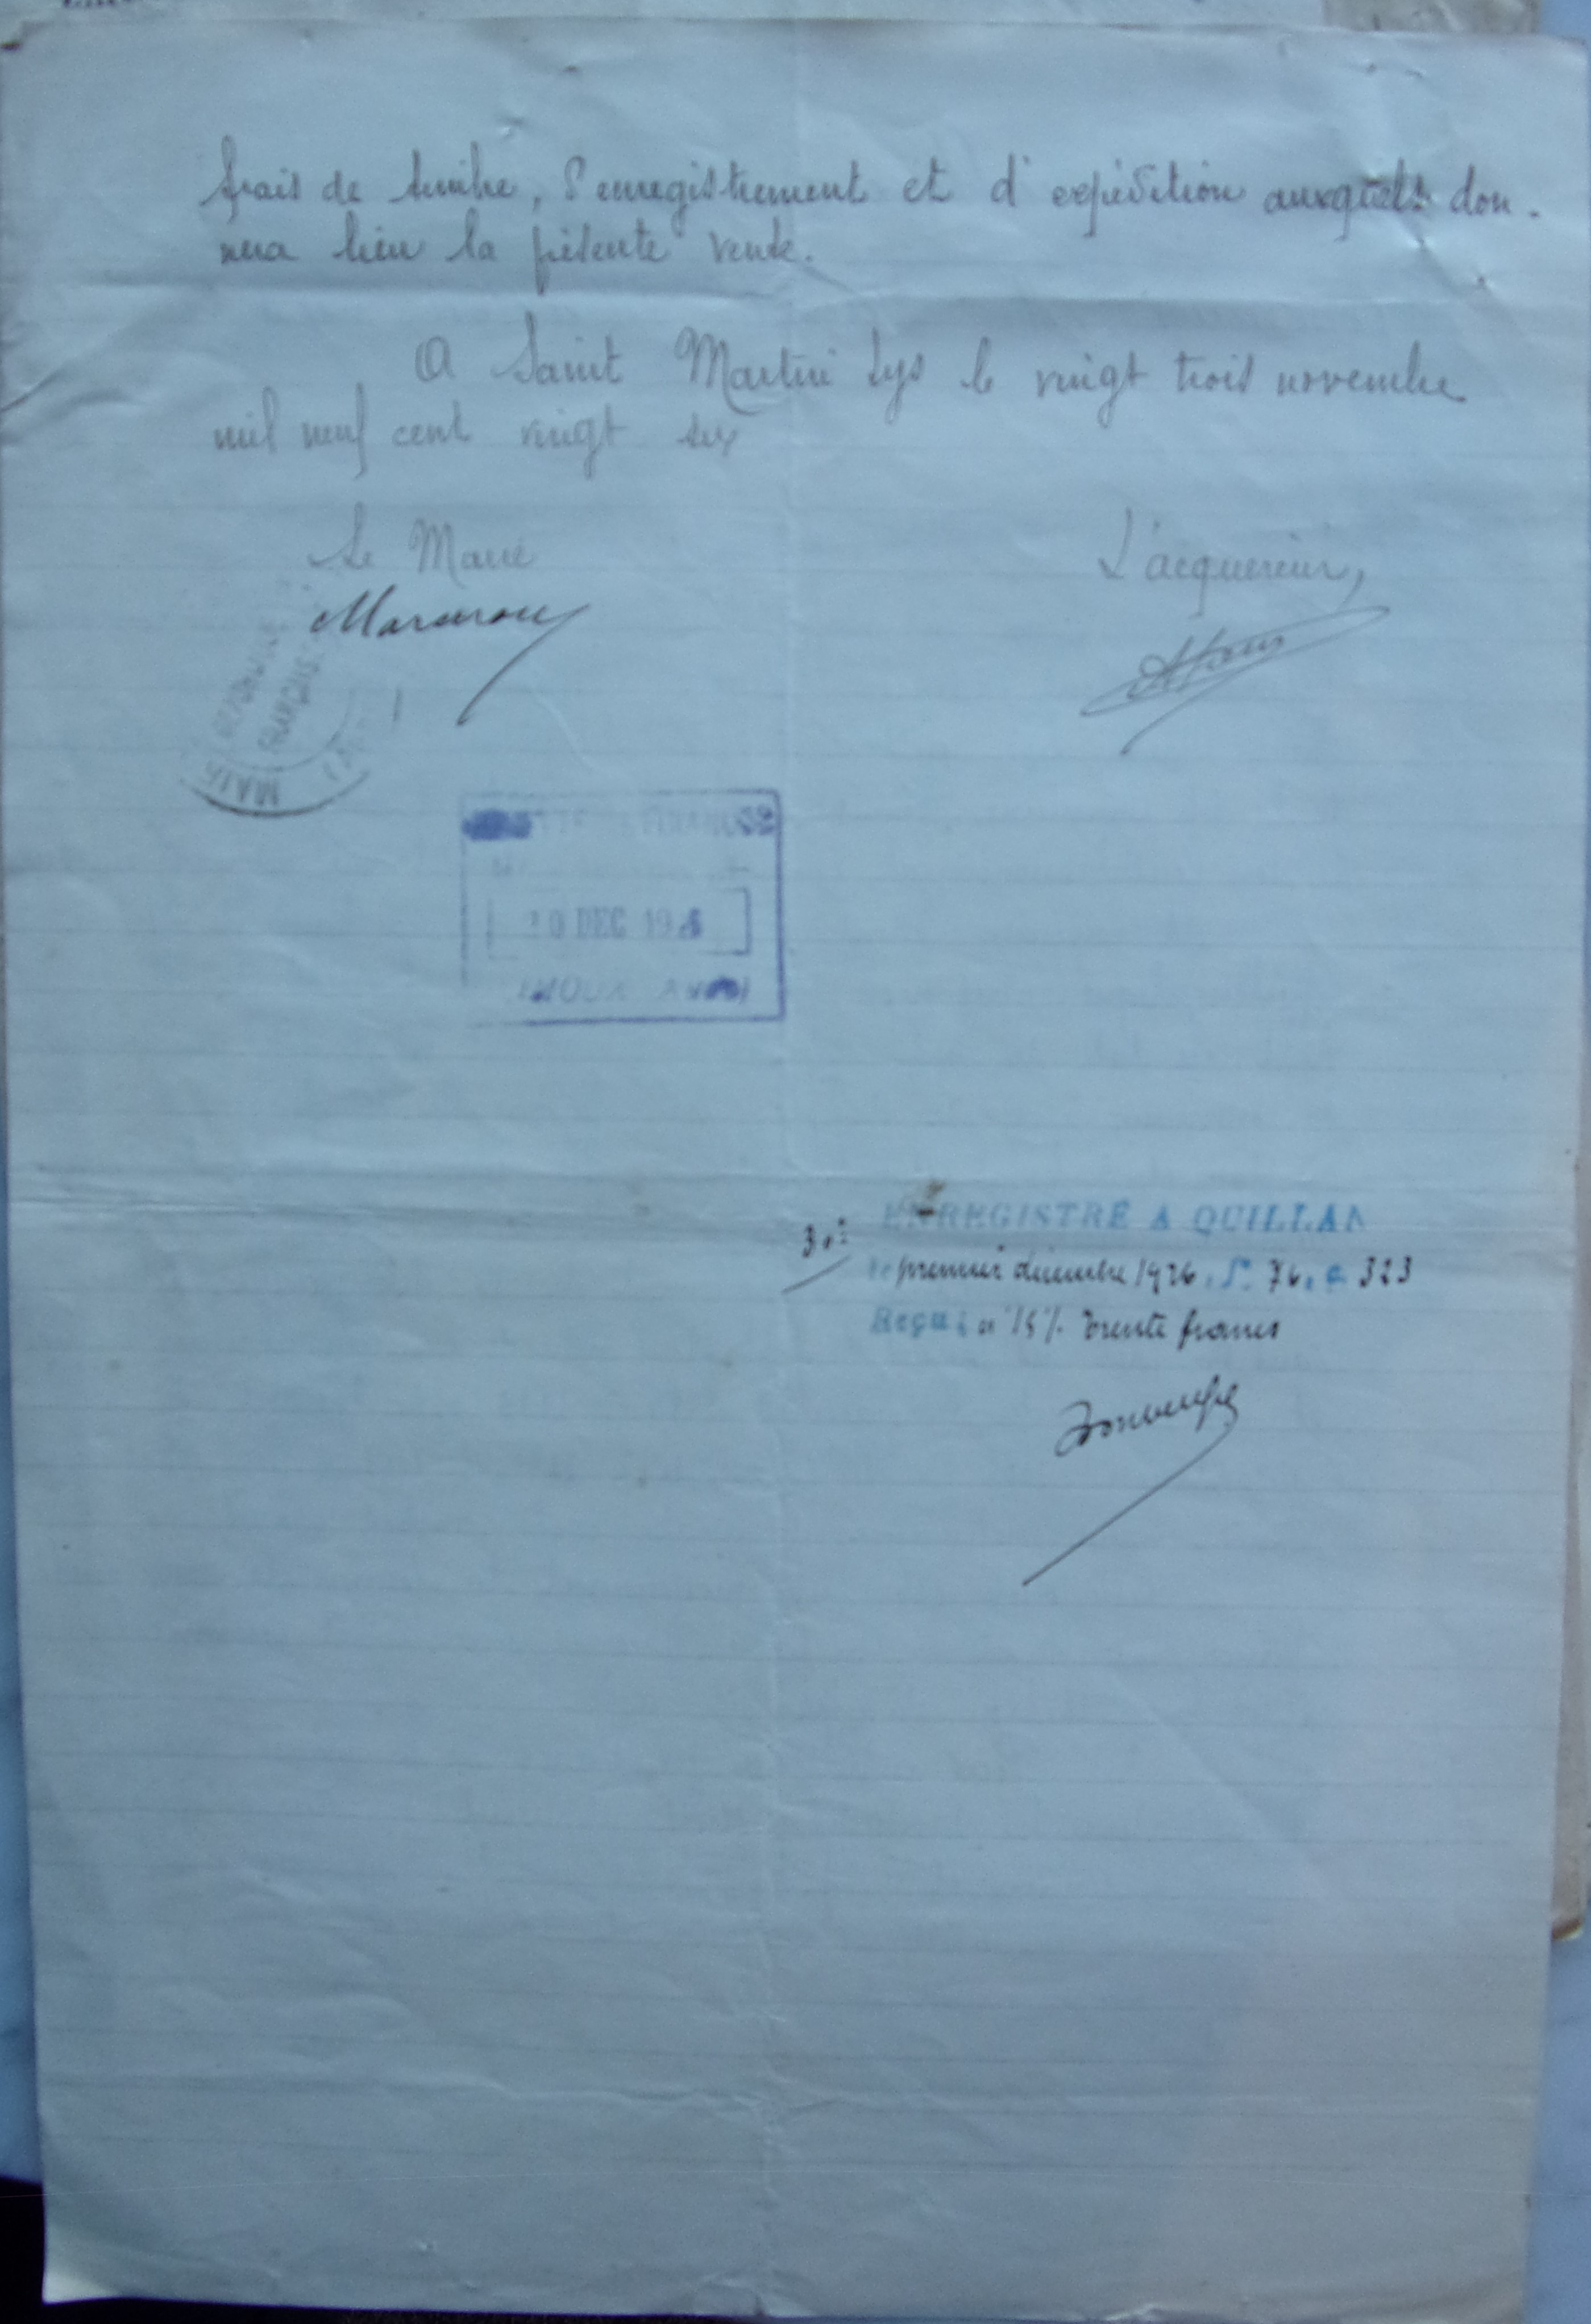 frais de timbre, d'enregistrement et d'expédition auxquels don-
nera lieu la présente vente.
A Saint Martin Lys le vingt trois novembre
mil neuf cent vingt six
Le Maire
L'acquereur,
FRANÇAISE
MAIRIE
10 DEC 1926
30
ENREGISTRÉ A QUILLAN
le premier décembre 1926. F° 76. C. 323
Reçu : a 15% trente francs